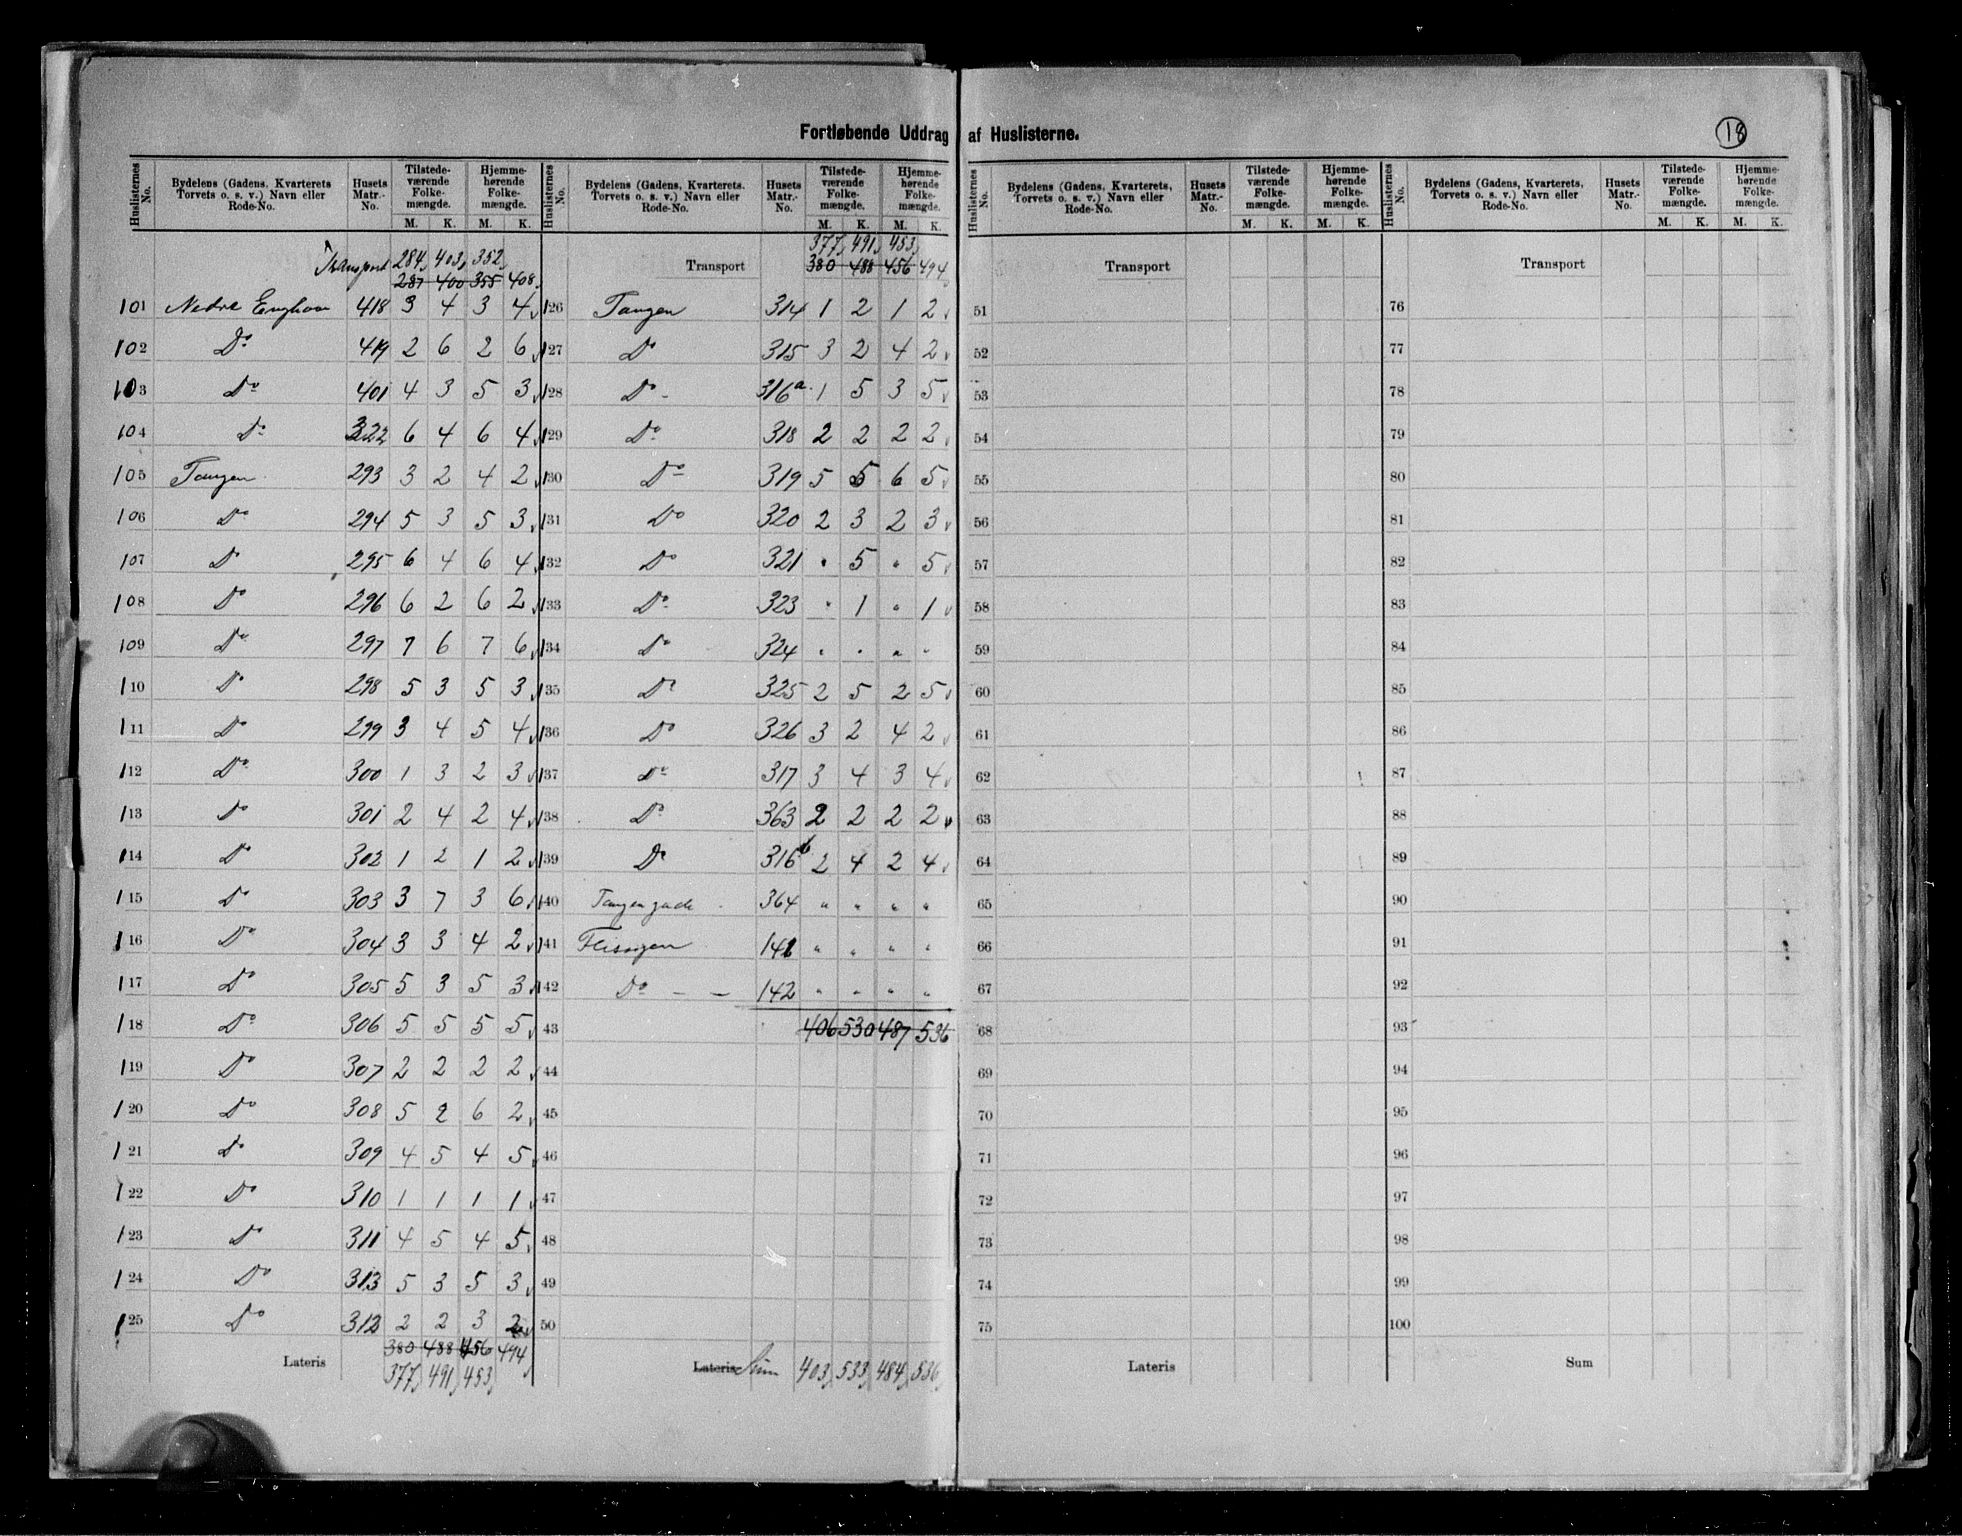 Fortløbende Uddrag af Huslisterne.
18
Huslisternes No. | Bydelens (Gadens, Kvarterets Torvets o. s. v.) Navn eller Rode-No. | Husets Matr.-No. | Tilstede-værende Folke-mængde. M. K. | Hjemme-hørende Folke-mængde. M. K.
Transport 284 403 352
287 400 355 408
101 Nedre Enghav 418 3 4 3 4
102 Do 419 2 6 2 6
103 Do 401 4 3 5 3
104 Do 322 6 4 6 4
105 Tangen 293 3 2 4 2
106 Do 294 5 3 5 3
107 Do 295 6 4 6 4
108 Do 296 6 2 6 2
109 Do 297 7 6 7 6
110 Do 298 5 3 5 3
111 Do 299 3 4 5 4
112 Do 300 1 3 2 3
113 Do 301 2 4 2 4
114 Do 302 1 2 1 2
115 Do 303 3 7 3 6
116 Do 304 3 3 4 2
117 Do 305 5 3 5 3
118 Do 306 5 5 5 5
119 Do 307 2 2 2 2
120 Do 308 5 2 6 2
121 Do 309 4 5 4 5
122 Do 310 1 1 1 1
123 Do 311 4 5 4 5
124 Do 313 5 3 5 3
125 Do 312 2 2 3 2
380 488 456 494
Lateris 377 491 453
Huslisternes No. | Bydelens (Gadens, Kvarterets. Torvets o. s. v.) Navn eller Rode-No. | Husets Matr.-No. | Tilstede-værende Folke-mængde. M. K. | Hjemme-hørende Folke-mængde. M. K.
377 491 453
Transport 380 488 456 494
126 Tangen 314 1 2 1 2
127 Do 315 3 2 4 2
128 Do 316a 1 5 3 5
129 Do 318 2 2 2 2
130 Do 319 5 5 6 5
131 Do 320 2 3 2 3
132 Do 321 " 5 " 5
133 Do 323 " 1 " 1
134 Do 324 " " " "
135 Do 325 2 5 2 5
136 Do 326 3 2 4 2
137 Do 317 3 4 3 4
138 Do 363 2 2 2 2
139 Do 316b 2 4 2 4
140 Tangengade 364 " " " "
141 Flisvigen 141 " " " "
142 Do 142 " " " "
43 406 530 487 536
44
45
46
47
48
49
50
Lateris Sum 403 533 484 536
Huslisternes No. | Bydelens (Gadens, Kvarterets, Torvets o. s. v.) Navn eller Rode-No. | Husets Matr.-No. | Tilstede-værende Folke-mængde. M. K. | Hjemme-hørende Folke-mængde. M. K.
Transport
51
52
53
54
55
56
57
58
59
60
61
62
63
64
65
66
67
68
69
70
71
72
73
74
75
Lateris
Huslisternes No. | Bydelens (Gadens, Kvarterets, Torvets o. s. v.) Navn eller Rode-No. | Husets Matr.-No. | Tilstede-værende Folke-mængde. M. K. | Hjemme-hørende Folke-mængde. M. K.
Transport
76
77
78
79
80
81
82
83
84
85
86
87
88
89
90
91
92
93
94
95
96
97
98
99
100
Sum